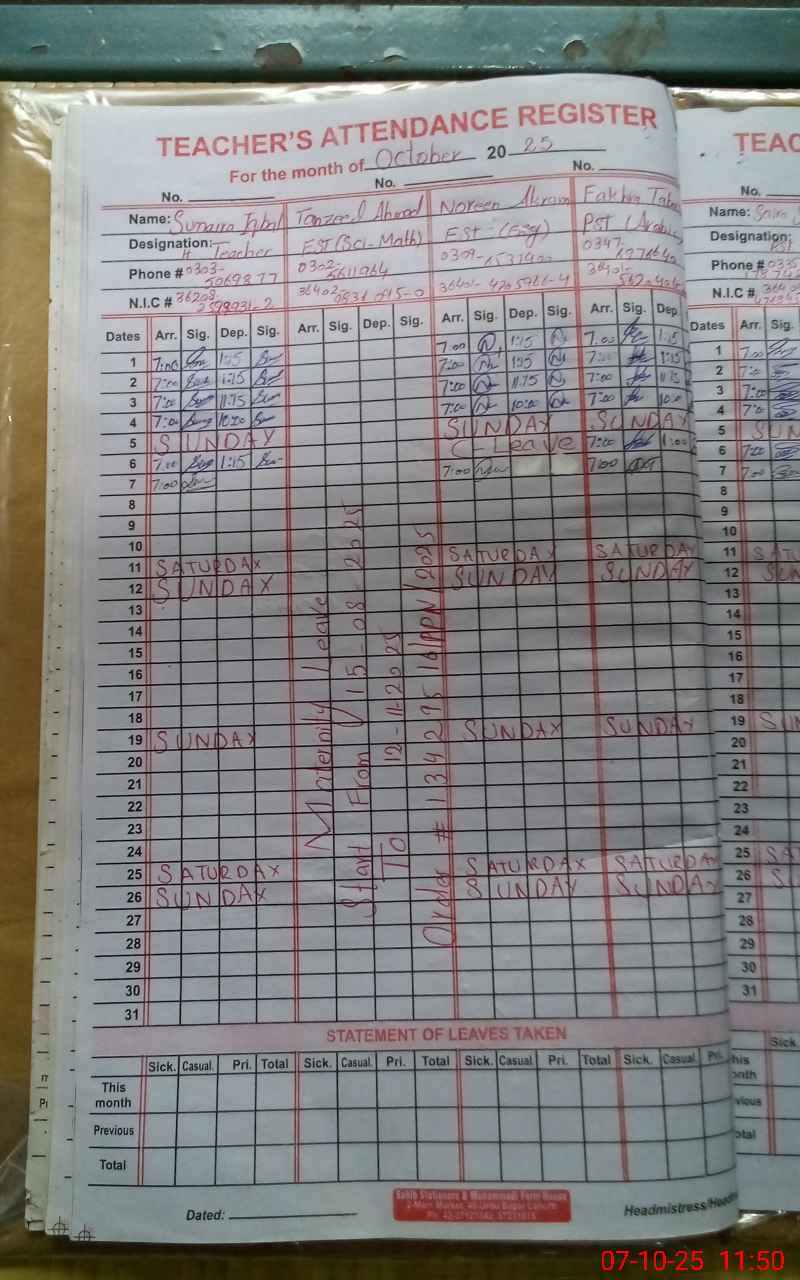 TEACHER'S ATTENDANCE REGISTER
For the month of October 20 25
No. No. No.
Name: Sumaira Iqbal Tanzeed Ahmad Noreen Akram Fakhira
Designation: Teacher EST (Sci-Math) EST (Eng) PST (Arabic)
Phone # 0303- 0302- 0309- 0347-
5069877 5611964
N.I.C # 36203- 36402- 36401- 4205966-4 36401-
2598931-2
Dates Arr. Sig. Dep. Sig. Arr. Sig. Dep. Sig. Arr. Sig. Dep. Sig. Arr. Sig. Dep.
1 7:00 1:15 7:00 1:15 7:00 1:15
2 7:00 1:15 7:00 1:15 7:00 1:15
3 7:00 11:75 7:00 11:75 7:00 11:75
4 7:00 10:00 7:00 10:00 7:00 10:0
5 SUNDAY SUNDAY SUNDAY
6 7:00 1:15 C-Leave 7:00 1:00
7 7:00 7:00 7:00
8
9
10
11 SATURDAY SATURDAY SATURDAY
12 SUNDAY SUNDAY SUNDAY
13
14
15
16
17
18
19 SUNDAY SUNDAY SUNDAY
20
21
22
23
24
25 SATURDAY SATURDAY SATURDAY
26 SUNDAY SUNDAY SUNDAY
27
28
29
30
31
Maternity Leave
Start From 15-08-2025
TO 12-11-2025
Order # 134295 16/APN/2025
STATEMENT OF LEAVES TAKEN
Sick. Casual. Pri. Total Sick. Casual. Pri. Total Sick. Casual. Pri. Total Sick. Casual. Pri.
This month
Previous
Total
Dated:
Sahib Stationers & Muhammadi Form House
2-Main Market, 40-Urdu Bazar Lahore
Headmistress/
TEAC
No.
Name:
Designation:
Phone #
N.I.C #
Dates Arr. Sig.
1 7:00
2 7:
3 7:00
4 7:00
5 SUN
6 7:00
7 7:00
8
9
10
11 SATU
12 SUN
13
14
15
16
17
18
19 SUN
20
21
22
23
24
25 SAT
26 SU
27
28
29
30
31
Sick.
07-10-25 11:50